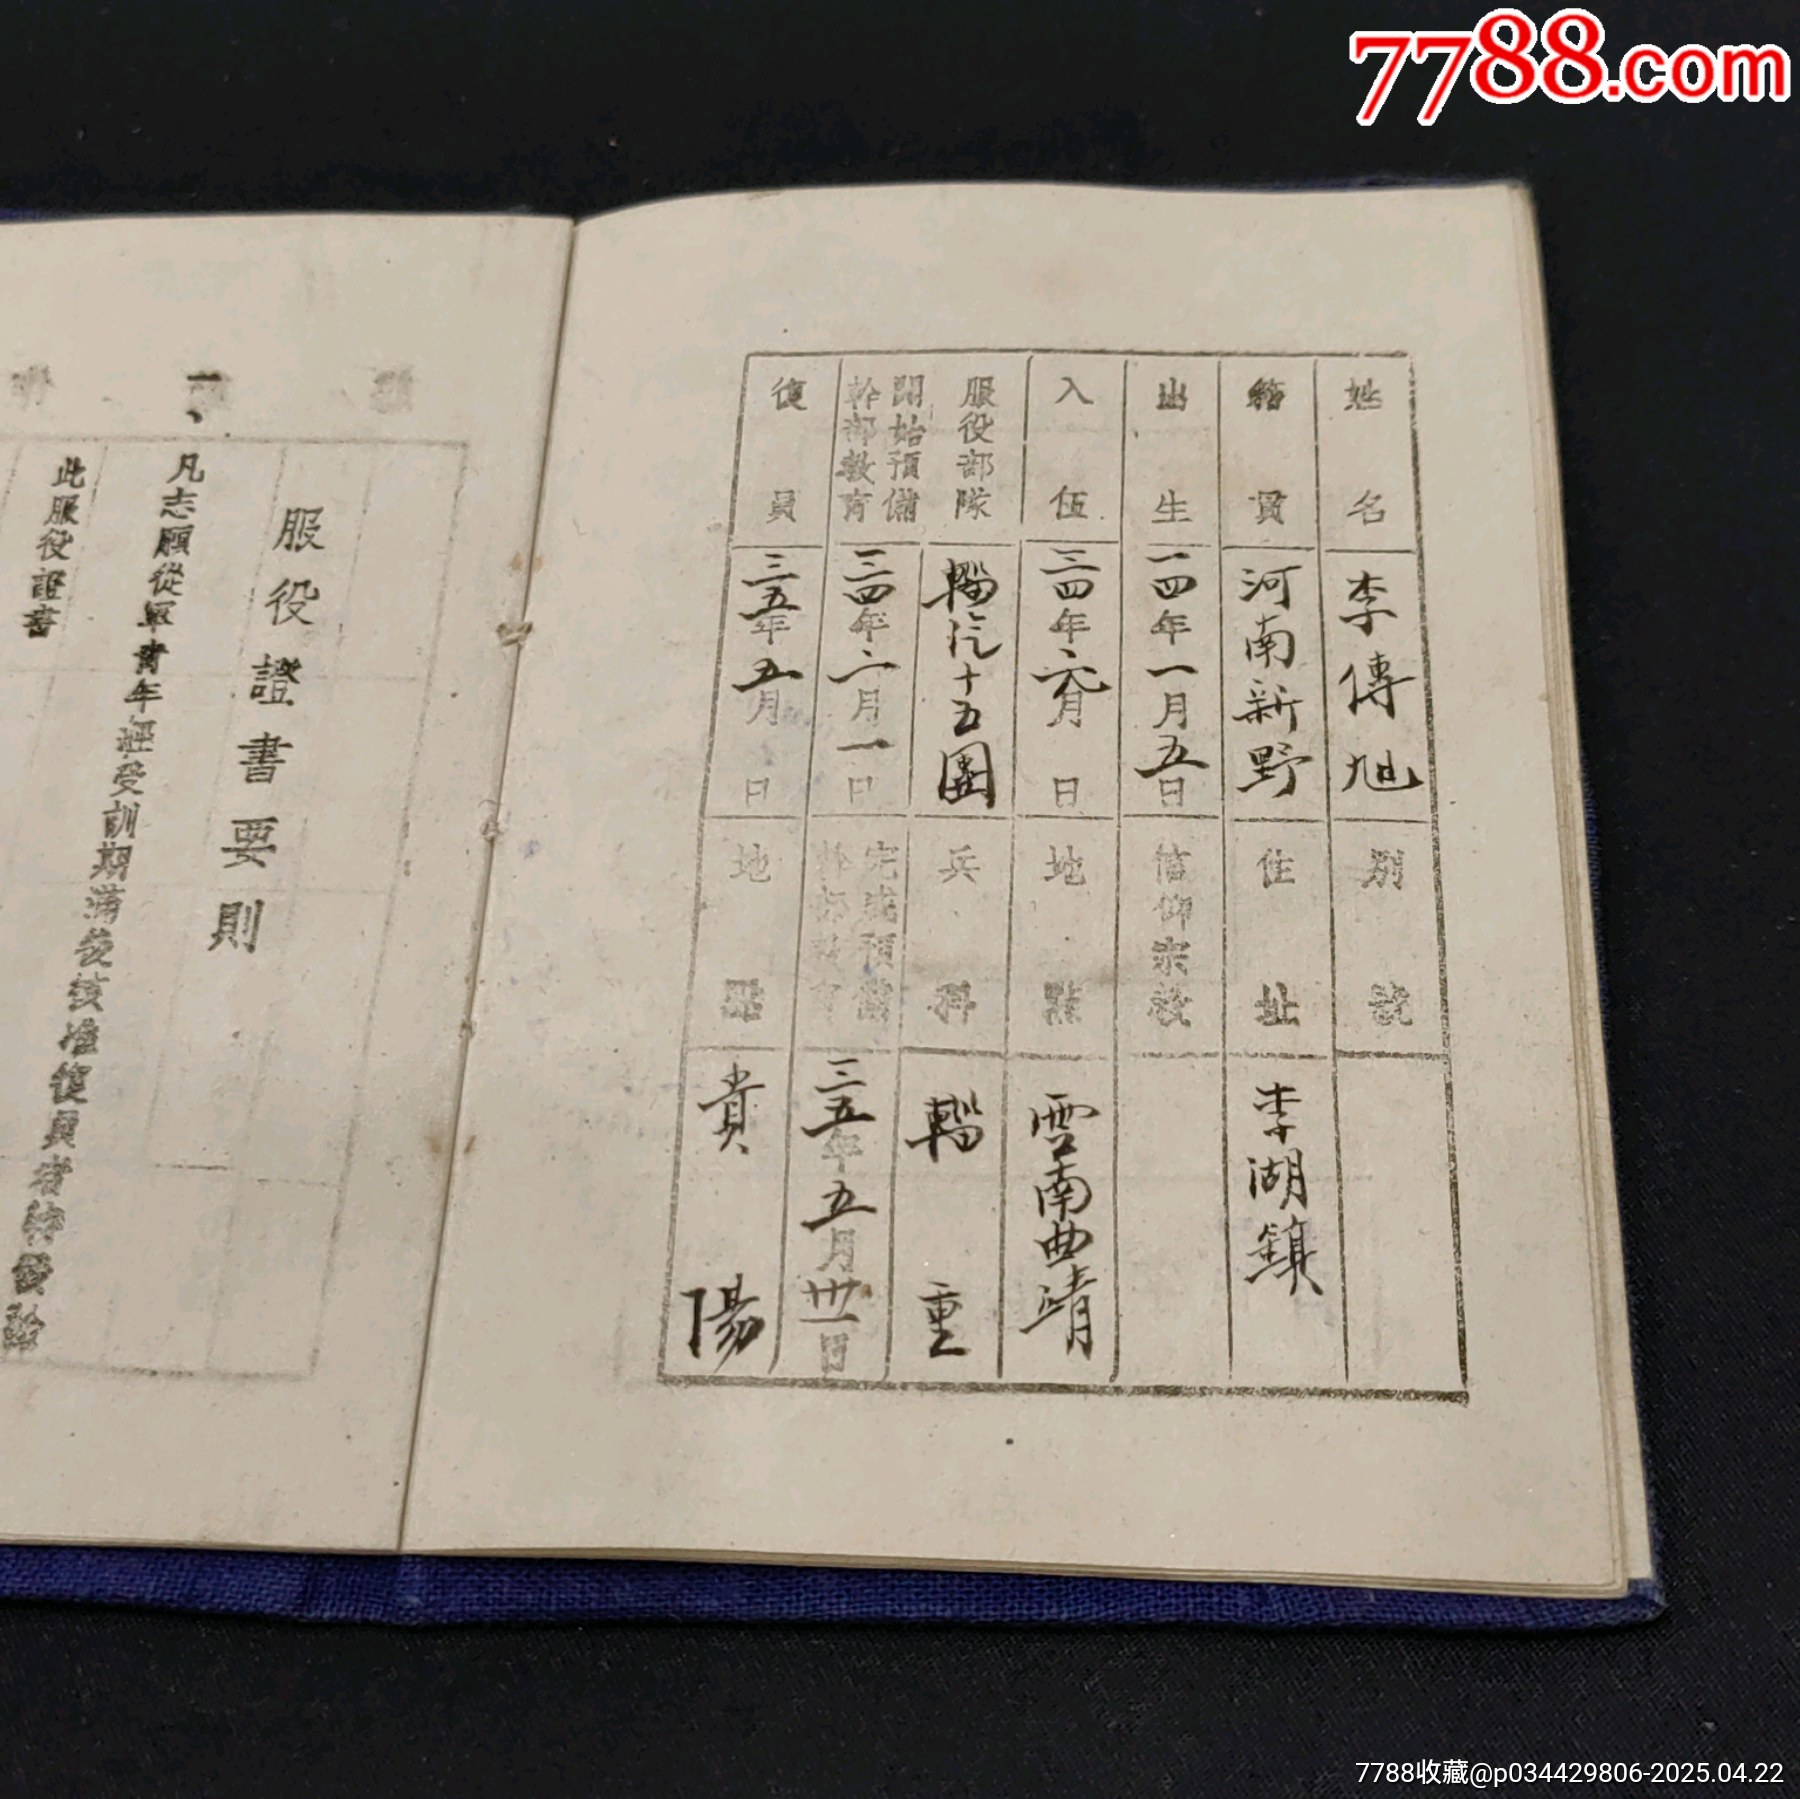 7788.com
姓名 李傳旭 別號
籍貫 河南新野 住址 李湖鎮
出生 一四年一月五日 信仰宗教
入伍 三四年六月 日 地點 雲南曲靖
服役部隊 輜汽十五團 兵科 輜重
開始預備幹部教育 三四年二月一日 完成預備幹部教育 三五年五月卅一日
復員 三五年五月 日 地點 貴陽
服役證書要則
一、凡志願從軍青年經受訓期滿後核准復員者特發給
此服役證書
7788收藏@p034429806-2025.04.22